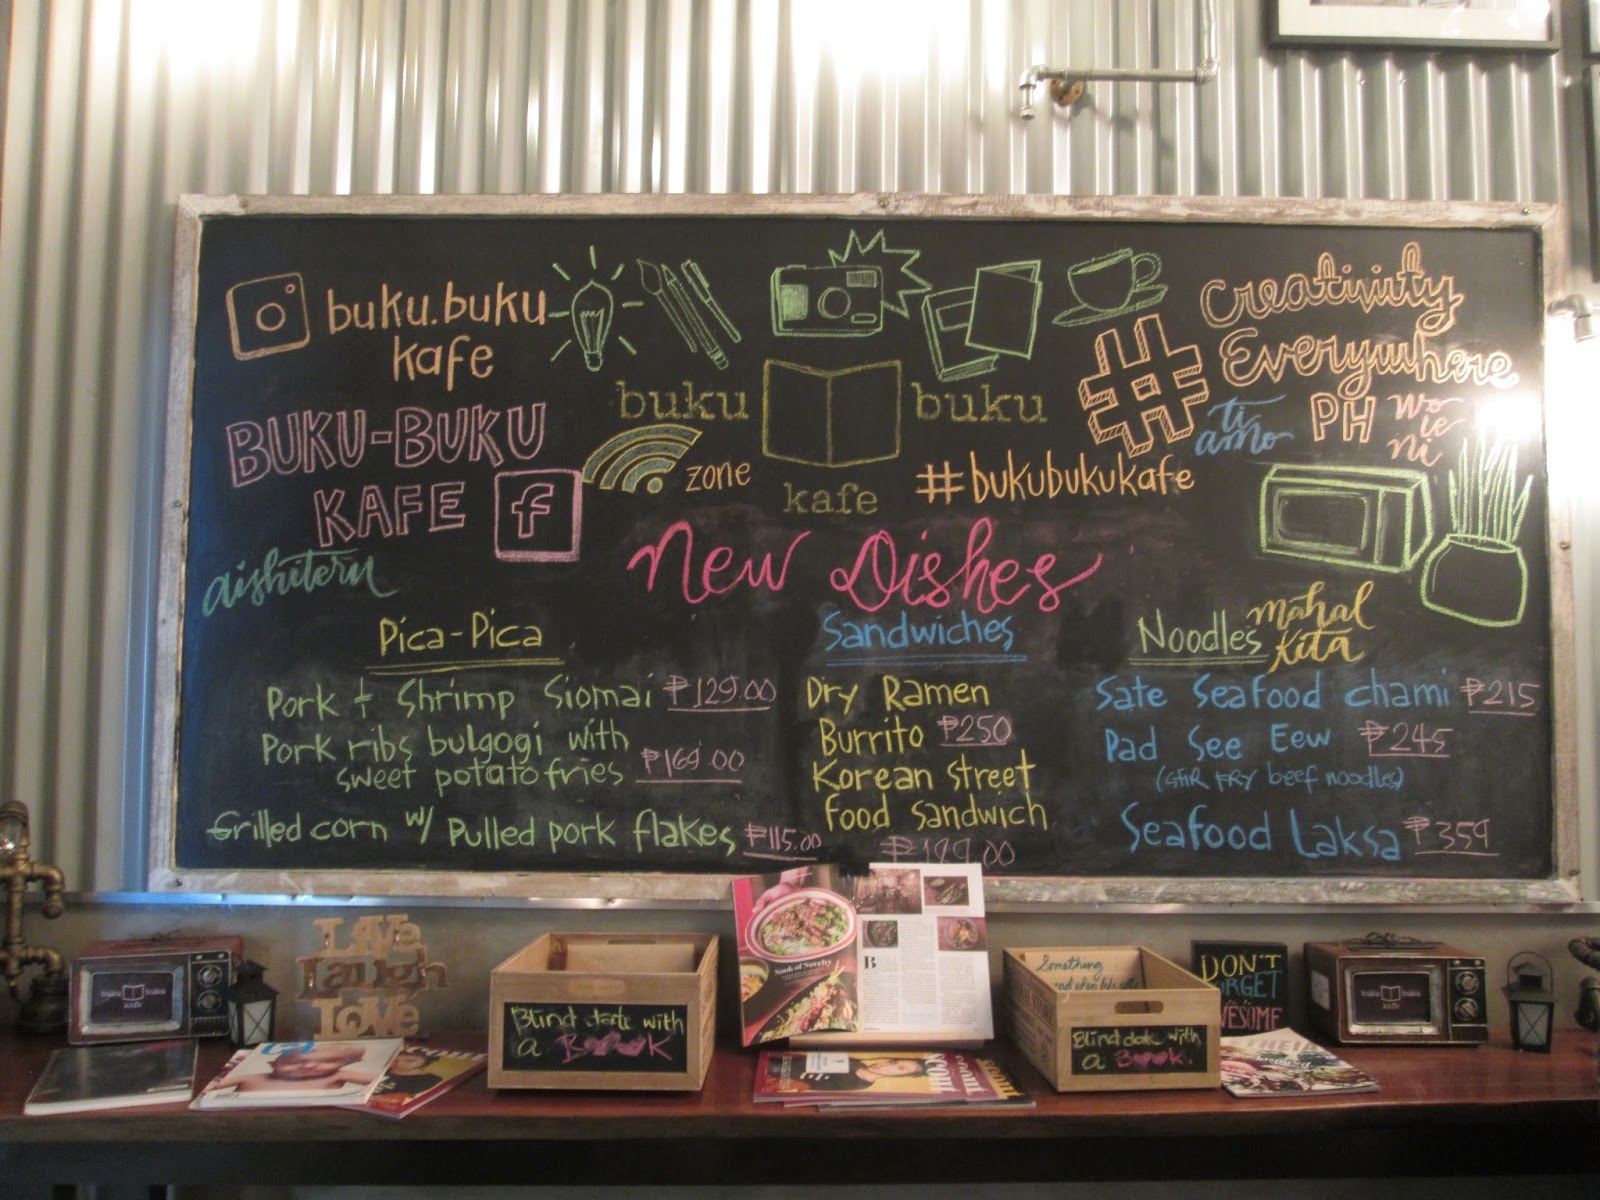 buku.buku
kafe
BUKU-BUKU
KAFE
f
aishiteru
buku buku
kafe
zone
#bukubukukafe
#Creativity
Everywhere
PH
ti
amo
wo
ie
ni
New Dishes
Pica-Pica
Pork + Shrimp Siomai ₱129.00
Pork ribs bulgogi with
sweet potato fries ₱169.00
Grilled corn w/ Pulled pork flakes ₱115.00
Sandwiches
Dry Ramen
Burrito ₱250
Korean Street
food sandwich
Noodles
mahal
kita
Sate Seafood chami ₱215
Pad See Eew ₱245
(stir fry beef noodles)
Seafood Laksa ₱359
buku buku
kafe
Live
Laugh
Love
Blind date with
a BOOK
Sook of Novelty
B
Something
Blind date with
a BOOK.
DON'T
FORGET
AWESOME
buku buku
kafe